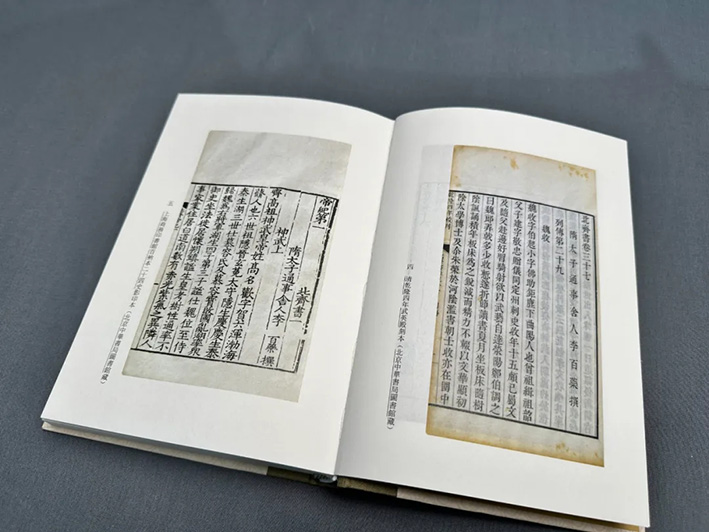 北齊書卷三十七
隋太子通事舍人李百藥撰
列傳第二十九
魏收
魏收字伯起小字佛助鉅鹿下曲陽人也曾祖緝祖韶
父子建字敬忠贈儀同定州刺史收年十五頗已屬文
及隨父赴邊好習騎射欲以武藝自達滎陽鄭伯調之
曰魏郎弄戟多少收慙遂折節讀書夏月坐板床隨樹
陰諷誦積年板床爲之銳減而精力不輟以文華顯初
除太學博士及尒朱榮於河陰濫害朝士收亦在圍中
乾隆四年校刊
四 清乾隆四年武英殿刻本（北京中華書局圖書館藏）
帝紀第一
北齊書一
隋太子通事舍人李 百藥 撰
神武上
齊高祖神武皇帝姓高名歡字賀六渾渤海
蓚人也六世祖隱晉玄菟太守隱生慶慶生泰
泰生湖三世仕慕容氏及慕容寶敗國亂湖率
衆歸魏爲右將軍湖生四子第三子謐仕魏位至侍
御史坐法徙居懷朔鎮謐生皇考樹性通率不
事家業住居白道南數有赤光紫氣之異鄰人
五 上海涵芬樓影印百衲本二十四史本（北京中華書局圖書館藏）